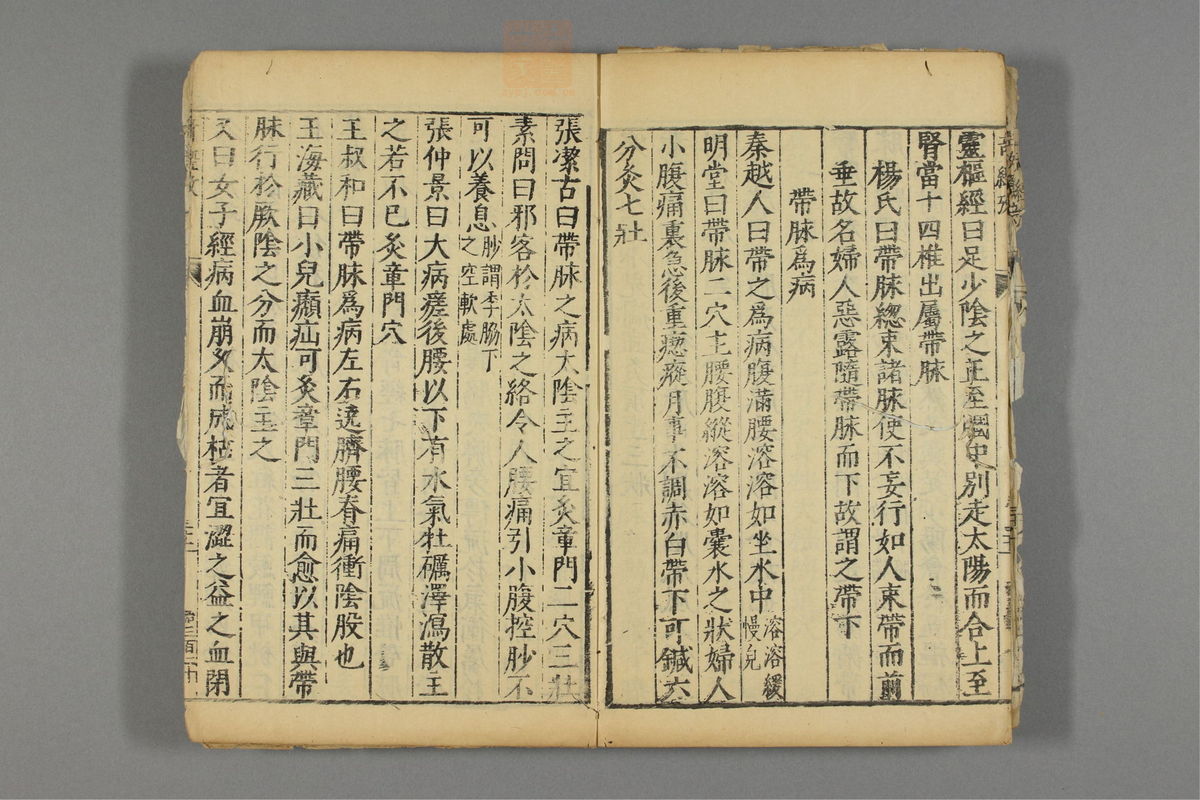 靈樞經曰足少陰之正至膕中別走太陽而合上至
腎當十四椎出屬帶脉
楊氏曰帶脉緫束諸脉使不妄行如人束帶而前
垂故名婦人惡露隨帶脉而下故謂之帶下
帶脉爲病
秦越人曰帶之爲病腹滿腰溶溶如坐水中溶溶緩慢皃
明堂曰帶脉二穴主腰腹縱溶溶如囊水之狀婦人
小腹痛裏急後重瘛瘲月事不調赤白帶下可鍼六
分灸七壯
張潔古曰帶脉之病太陰主之宜灸章門二穴三壯
素問曰邪客於太陰之絡令人腰痛引小腹控䏚不
可以養息䏚謂季脇下之空軟處
張仲景曰大病瘥後腰以下有水氣牡礪澤瀉散主
之若不已灸章門穴
王叔和曰帶脉爲病左右遶臍腰脊痛衝陰股也
王海藏曰小兒癩疝可灸章門三壯而愈以其與帶
脉行於厥陰之分而太陰主之
又曰女子經病血崩久而成枯者宜澀之益之血閉